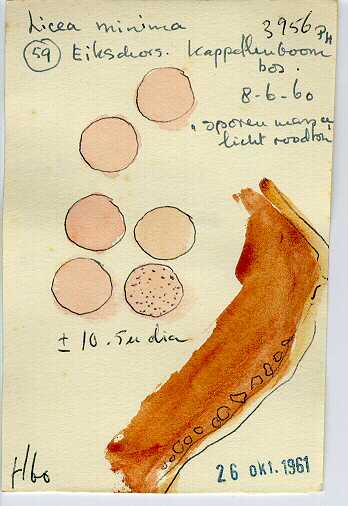 Licea minima
3956 PH
59 Eikschors. Kappellenboom
bos.
8-6-60
"sporen massa
licht roodbr."
± 10.5 u dia
H60
26 OKT. 1961